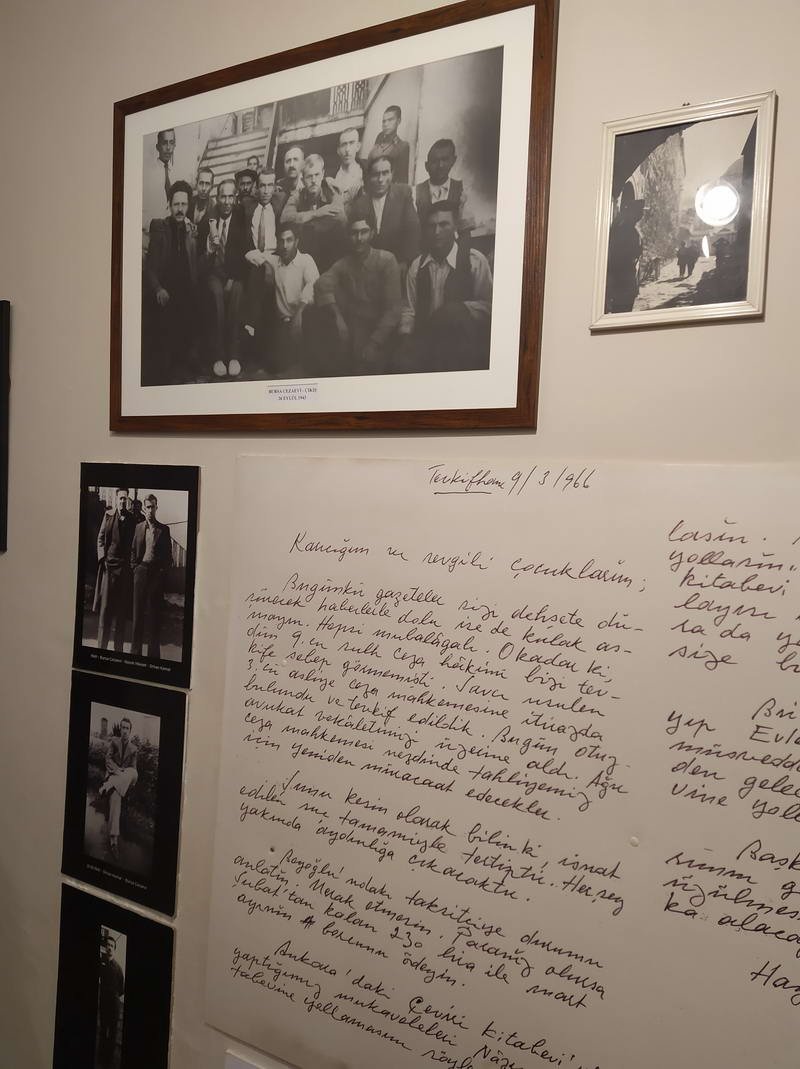 BURSA CEZAEVİ - ÇIKIŞ
26 EYLÜL 1943
Tevkifhane 9/3/966
Karıcığım ve sevgili çocuklarım;
Bugünkü gazeteler sizi dehşete dü-
şürecek haberlerle dolu ise de kulak as-
mayın. Hepsi mübalâgalı. O kadar ki,
dün 9.cu sulh ceza hâkimi bizi tev-
kife sebep görmemişti. Savcı usulen
3.cü asliye ceza mahkemesine itirazda
bulundu ve tevkif edildik. Bugün otuz
avukat vekâletimizi üzerine aldı. Ağır
ceza mahkemesi nezdinde tahliyemiz
için yeniden müracaat edecekler.
Şunu kesin olarak bilin ki, isnat
edilen suç tamamiyle tertiptir. Herşey
yakında aydınlığa çıkacaktır.
Beyoğlu'ndaki taksitçiye durumu
anlatın. Merak etmesin. Paranız olursa
Şubat'tan kalan 230 lira ile mart
ayının borcunu ödeyin.
Ankara'daki Çeviri kitabevi'
yaptığımız mukaveleleri
tabevine yollamasını
lasın.
yollasın..
kitabevi
sa da
size
yıp
müsvedde
den gelec
vine yoll
Başk
üzülmes
ka alaca